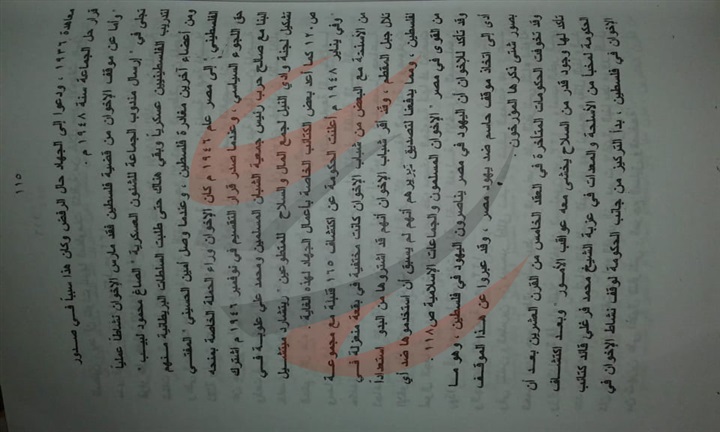 معاهدة ١٩٣٦ ، ودعوا إلى الجهاد حال الرفض وكان هذا سبباً فـي صـدور
قرار حل الجماعة سنة ١٩٤٨ م .
وأما عن موقف الإخوان من قضية فلسطين فقد مارس الإخوان نشاطاً عملياً
تجلى في : إرسال مندوب الجماعة للشئون العسكرية " الصاغ محمود لبيب "
لتدريب الفلسطينيين عسكرياً وبقى هناك حتى طلبت السلطات البريطانية منـهم
ومن أعضاء آخرين مغادرة فلسطين ، وعندما وصل أمين الحسيني " المفتـي
الفلسطيني " إلى مصر عام ١٩٤٦ م كان الإخوان وراء الحملة الخاصة بمنحه
حق اللجوء السياسي ، وعندما صدر قرار التقسيم في نوفمبر ١٩٤٦ م اشترك
البنا مع صالح حرب رئيس جمعية الشبان المسلمين ومحمد على علوبة فـي
تشكيل لجنة وادي النيل لجمع المال والسلاح للمتطوعين . ريتشارد ميتشـيل
ص ١٢٠ كما أعد بعض الكتائب الخاصة بأعمال الجهاد لهذه الغاية .
وفي يناير ١٩٤٨ م أعلنت الحكومة عن اكتشاف ١٦٥ قنبلة مع مجموعـة
من الأسلحة مع البعض من شباب الإخوان كانت مختفية في بقعة منعزلة فـي
تلال جبل المقطم ، وقد أقر شباب الإخوان أنهم قد اشتروها من البدو استعداداً
لفلسطين ، ومما يدفعنا لتصديق تبريرهم أنهم لم يسبق أن استخدموها ضد أي
من القوى في مصر . الإخوان المسلمون والجماعات الإسلامية ص ١١٨
وقد تأكد للإخوان أن اليهود في مصر يناصرون اليهود في فلسطين ، وهو مـا
أدى إلى اتخاذ موقف حاسم ضد يهود مصر ، وقد عبروا عن هـذا الموقـف
بصور شتى ذكرها المؤرخون .
وقد تخوفت الحكومات المتأخرة في العقد الخامس من القرن العشرين بعـد أن
تأكد لها وجود قدر من السلاح يخشى معه عواقب الأمـور . وبعـد اكتشـاف
الحكومة لمخبأ من الأسلحة والمعدات في عزبة الشيخ محمد فرغلي قائد كتائب
الإخوان في فلسطين ، بدأ التركيز من جانب الحكومة لوقف نشاط الإخوان في
١١٥